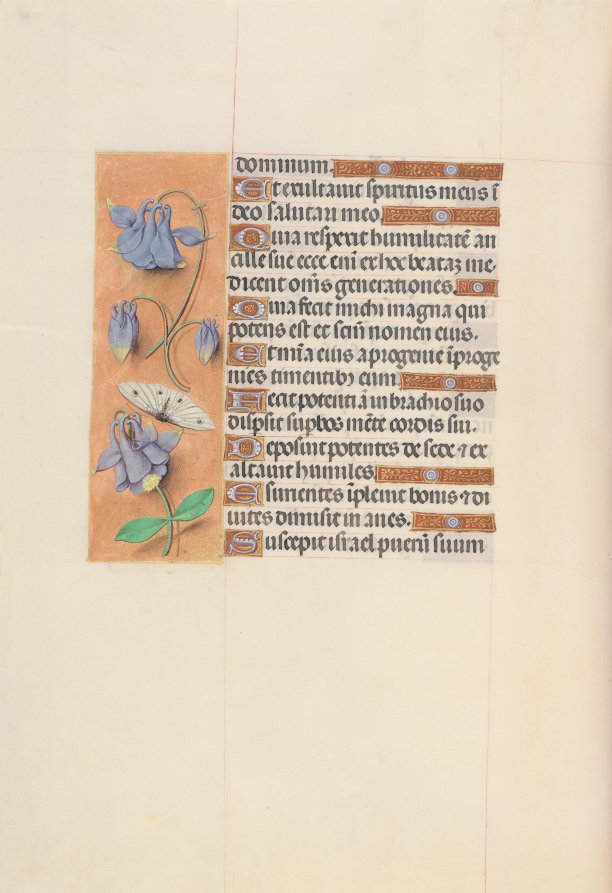 dominum.
Et exultauit spiritus meus ī
deo salutari meo
Quia respexit humilitatē an
cille sue ecce enī ex hoc beatā me
dicent om̄s generationes.
Quia fecit michi magna qui
potens est et sc̄m nomen eius.
Et mīa eius a progenie ī proge
nies timentibꝫ eum.
Fecit potentiā in brachio suo
dispsit supbos mēte cordis sui.
Deposuit potentes de sede ⁊ ex
altauit humiles
Esurientes īpleuit bonis ⁊ di
uites dimisit inanes.
Suscepit israel puerū suum